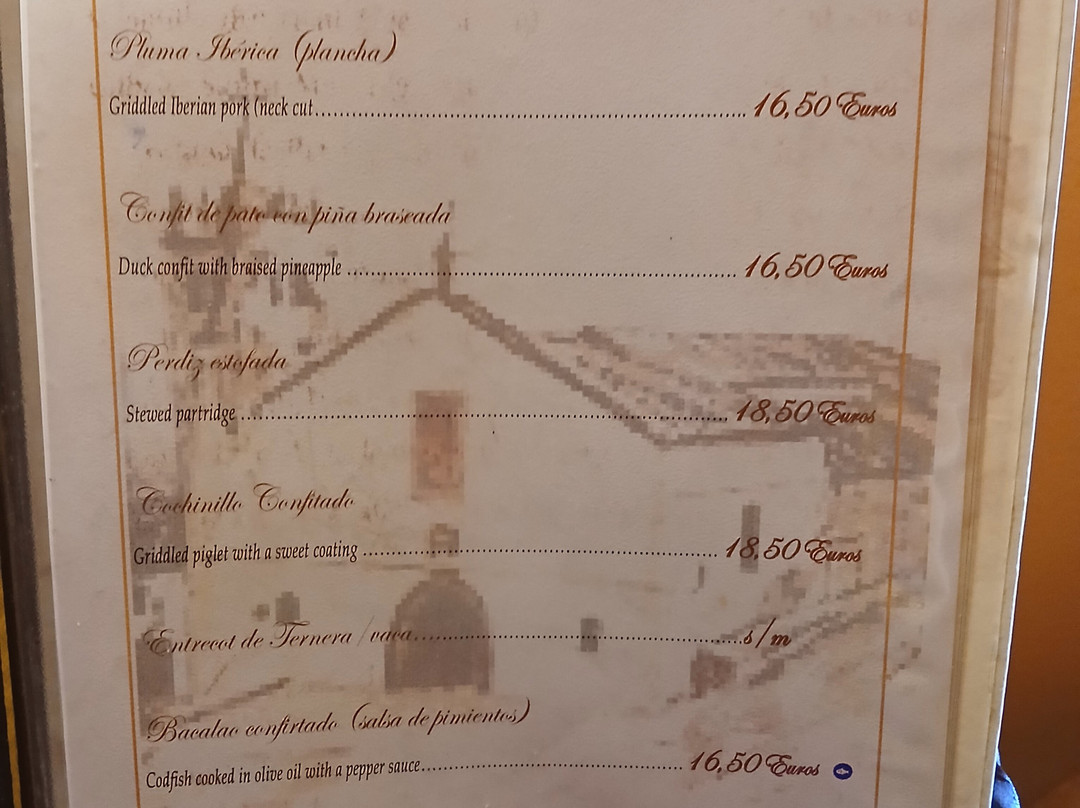 Pluma Ibérica (plancha)
Griddled Iberian pork (neck cut.......................................................................... 16,50 Euros
Confit de pato con piña braseada
Duck confit with braised pineapple ...................................................................... 16,50 Euros
Perdiz estofada
Stewed partridge ......................................................................................... 18,50 Euros
Cochinillo Confitado
Griddled piglet with a sweet coating .................................................................. 18,50 Euros
Entrecot de Ternera /vaca.............................................................s/m
Bacalao confirtado (salsa de pimientos)
Codfish cooked in olive oil with a pepper sauce.................................................. 16,50 Euros